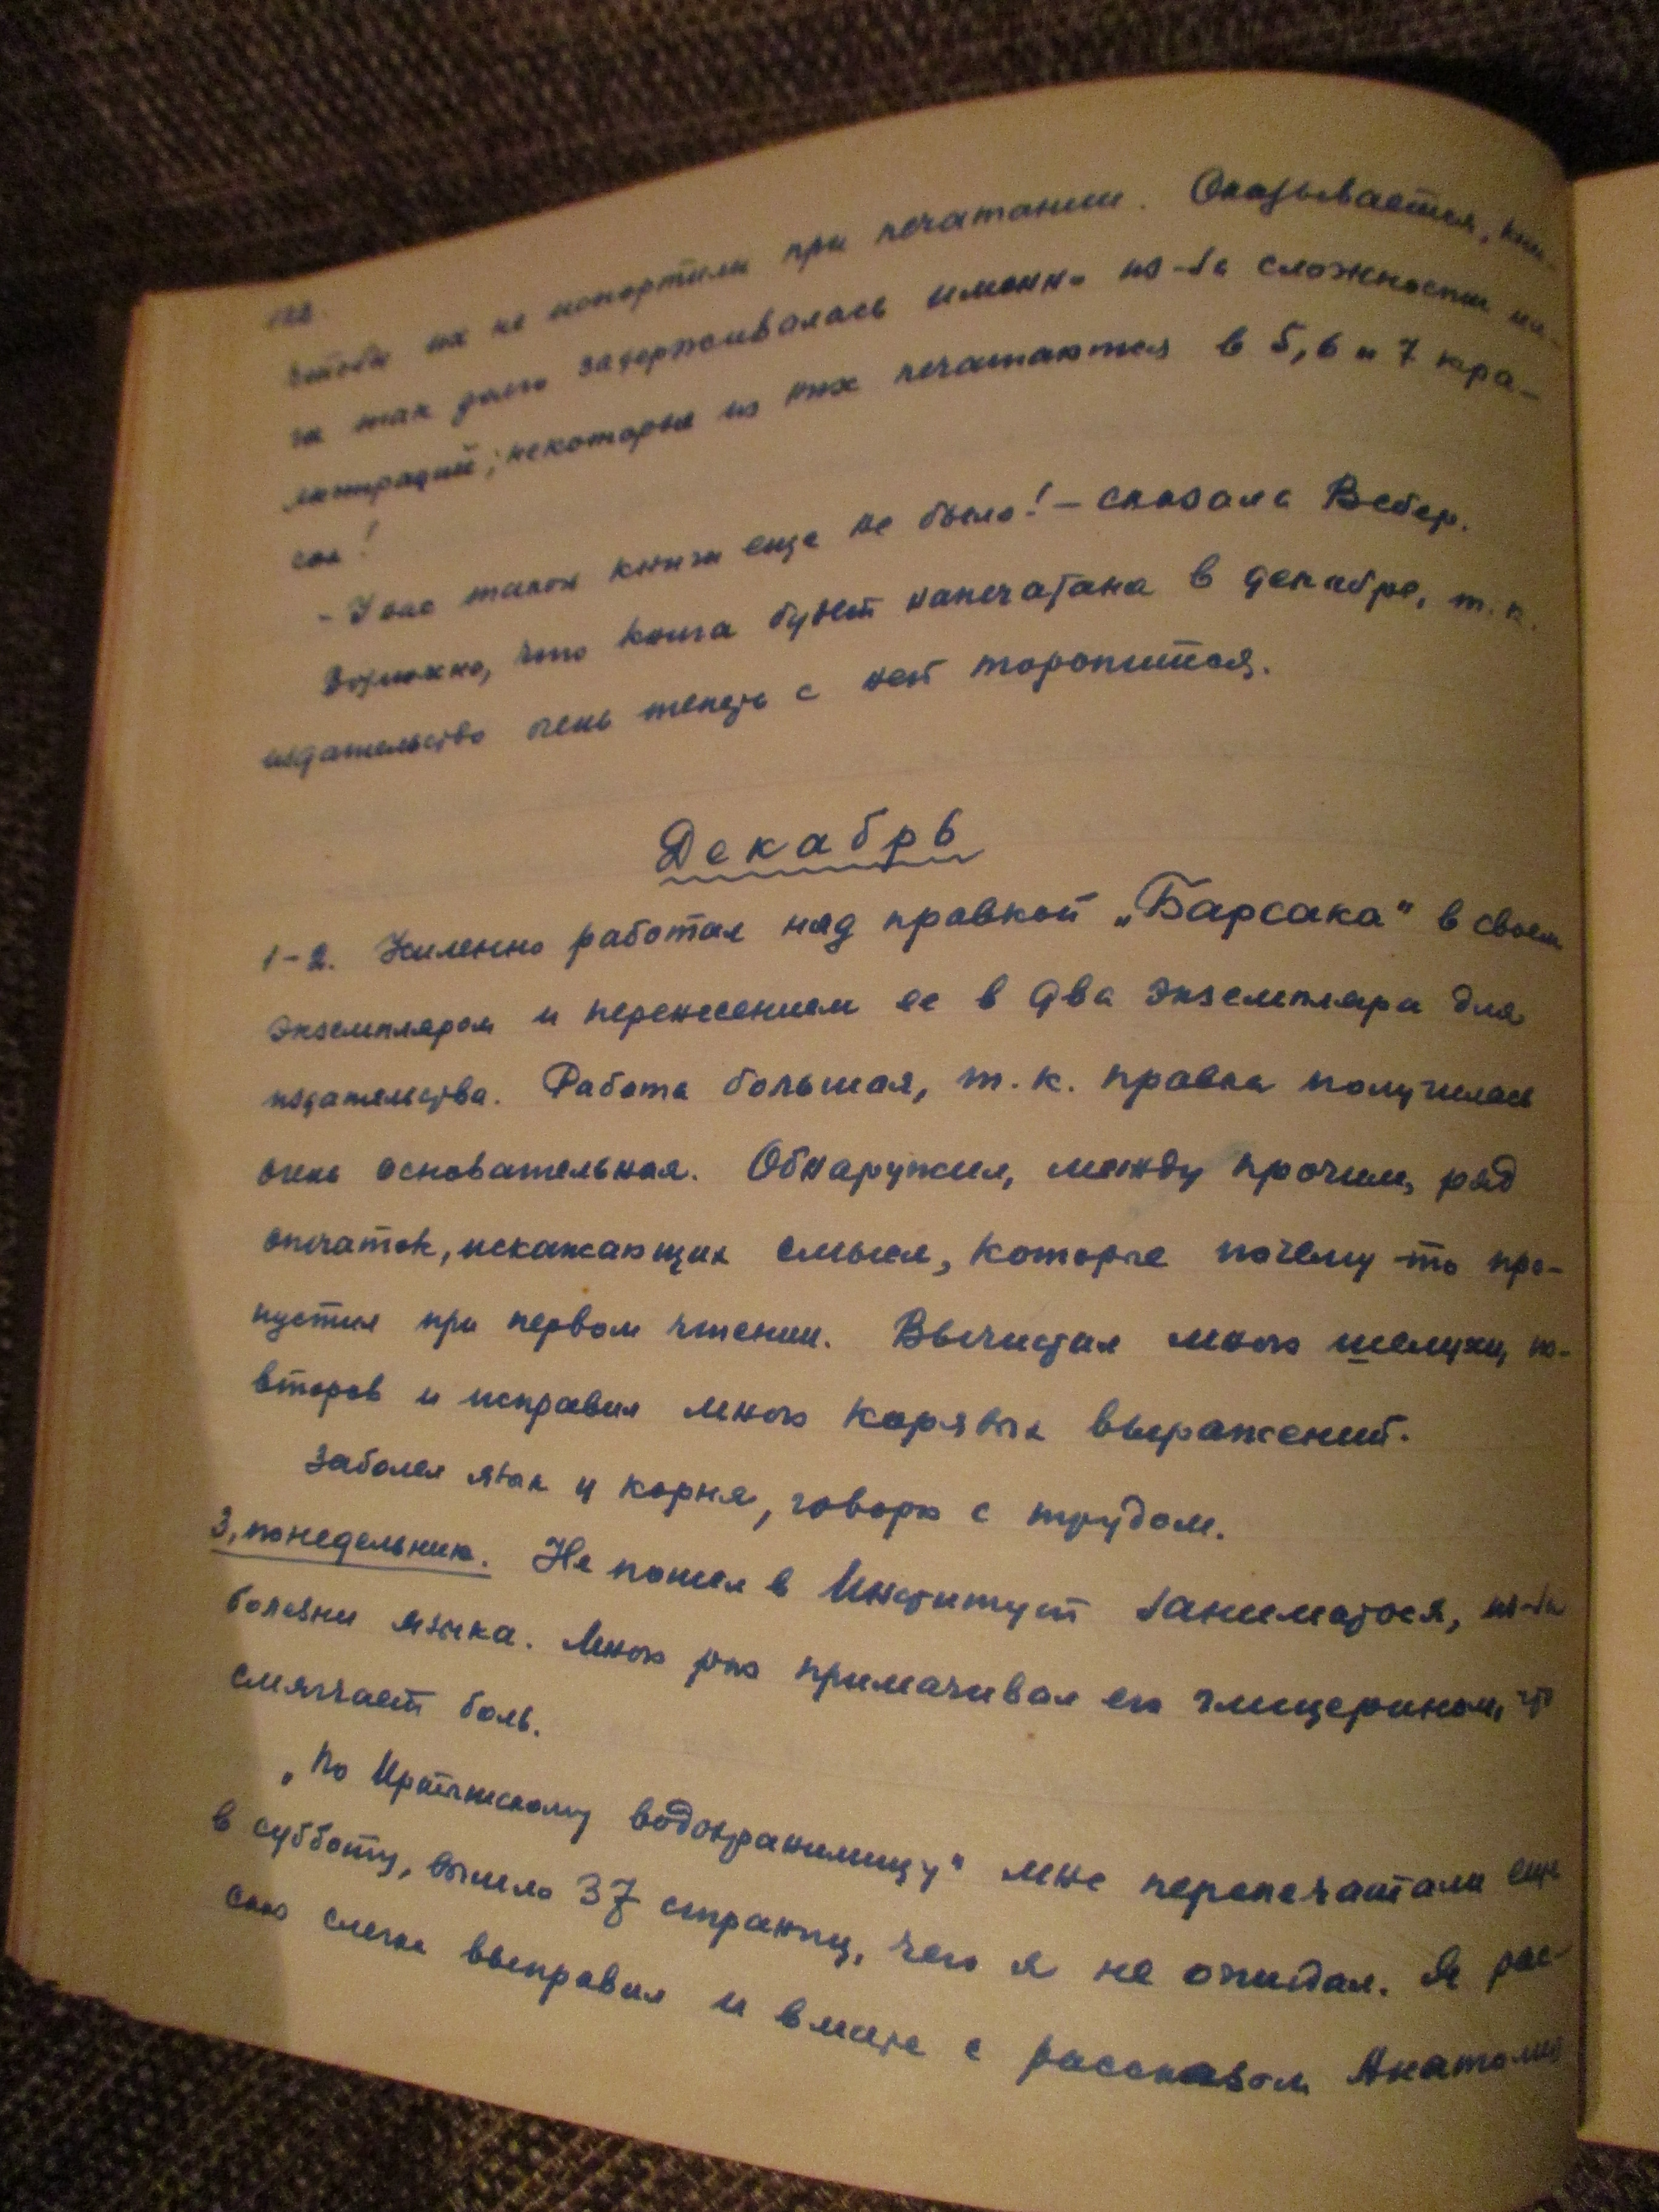 122.
чтобы их не попортили при печатании. Оказывается, кни-
га так долго задерживалась именно из-за сложности ил-
люстраций; некоторые из них печатаются в 5, 6 и 7 кра-
сок!
- У нас такой книги еще не было! - сказала Вебер.
Возможно, что книга будет напечатана в декабре, т.к.
издательство очень теперь с ней торопится.
Декабрь
1-2. Усиленно работал над правкой „Барсака" в своем
экземпляром и перенесением ее в два экземпляра для
издательства. Работа большая, т.к. правка получилась
очень основательная. Обнаружил, между прочим, ряд
опечаток, искажающих смысл, которые почему-то про-
пустил при первом чтении. Вычистил много шелухи, по-
второв и исправил много корявых выражений.
Заболел язык у корня, говорю с трудом.
3, понедельник. Не пошел в Институт заниматься, из-за
болезни языка. Много раз примачивал его глицерином,
смягчает боль.
„По Иртышскому водохранилищу" мне перепечатали еще
в субботу, вышло 37 страниц, чего я не ожидал. Я рас-
сказ слегка выправил и вместе с рассказом Анатолия